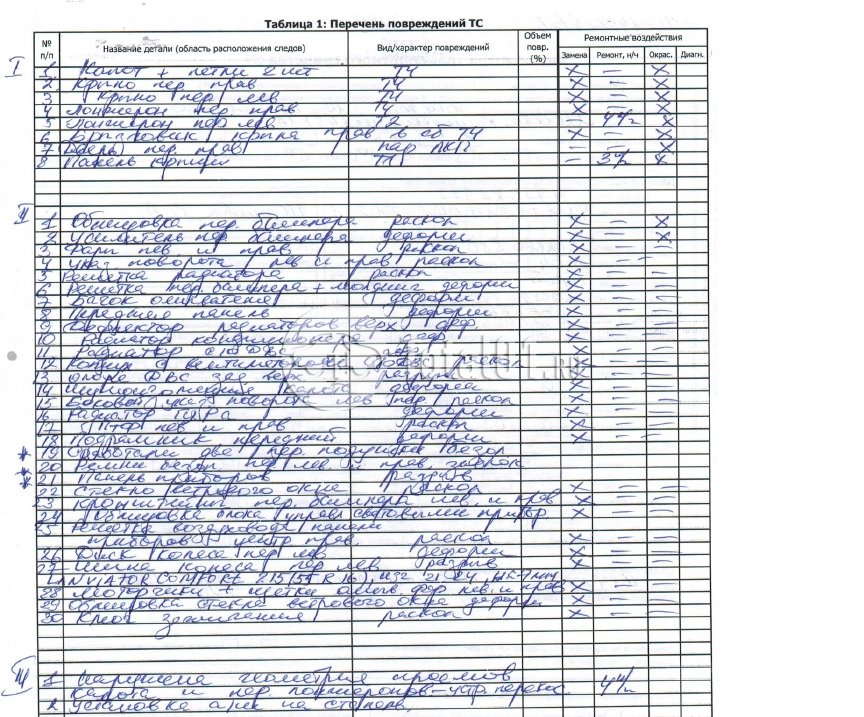 Таблица 1: Перечень повреждений ТС
№ п/п Название детали (область расположения следов) Вид/характер повреждений Объем повр. (%) Ремонтные воздействия
Замена Ремонт, н/ч Окрас. Диагн.
I
1 Капот + петли 2 шт Т4 X — X
2 Крыло пер прав Т4 X — X
3 Крыло пер лев Т4 X — X
4 Лонжерон пер прав Т4 X — X
5 Лонжерон пер лев Т2 — 4 н/ч X
6 Брызговик крыла прав в сб Т4 X — X
7 Дверь пер прав нар ЛКП — — X
8 Панель крыши — 3 н/ч X
II
1 Облицовка пер. бампера раскол X — X
2 Усилитель пер бампера деформ X — X
3 Фары лев и прав раскол X — —
4 Указ поворота лев и прав раскол X — —
5 Решетка радиатора раскол X — —
6 Решетка пер. бампера + молдинг деформ X — —
7 Бачок омывателя деформ X — —
8 Передняя панель деформ X — —
9 Дефлектор радиаторов верх деф. X — —
10 Радиатор кондиционера деф. X — —
11 Радиатор ДВС X — —
12 Кожух X — —
13 опора ДВС X — —
14 Шумоизоляция капота деформ X — —
15 Боковой указ поворот лев пер. раскол X — —
16 Радиатор ГУРа деформ X — —
17 ПТФ лев и прав раскол X — —
18 Подрамник передний деформ X — —
* 19 Сработали две пер. подушки безоп
* 20 Ремни безоп пер лев и прав
* 21 Панель приборов разрыв
22 Стекло ветрового окна раскол X — —
23 Кронштейн пер. бампера лев и прав X — —
24 Облицовка блока управ световыми прибор X — —
25 Решетка воздуховода панели
приборов центр прав. раскол X — —
26 Диск колеса пер лев деформ X — —
27 Шина колеса пер лев разрыв X — —
COMFORT 215/55 R 16
28 Моторчики + щетки омыв. фар лев. и прав X — —
29 Облицовка стекла ветрового окна деформ X — —
30 Ключ зажигания раскол X — —
III
1 Нарушена геометрия проемов
капота и пер. лонжеронов 4 н/ч
2 Установка а/м на стапель.